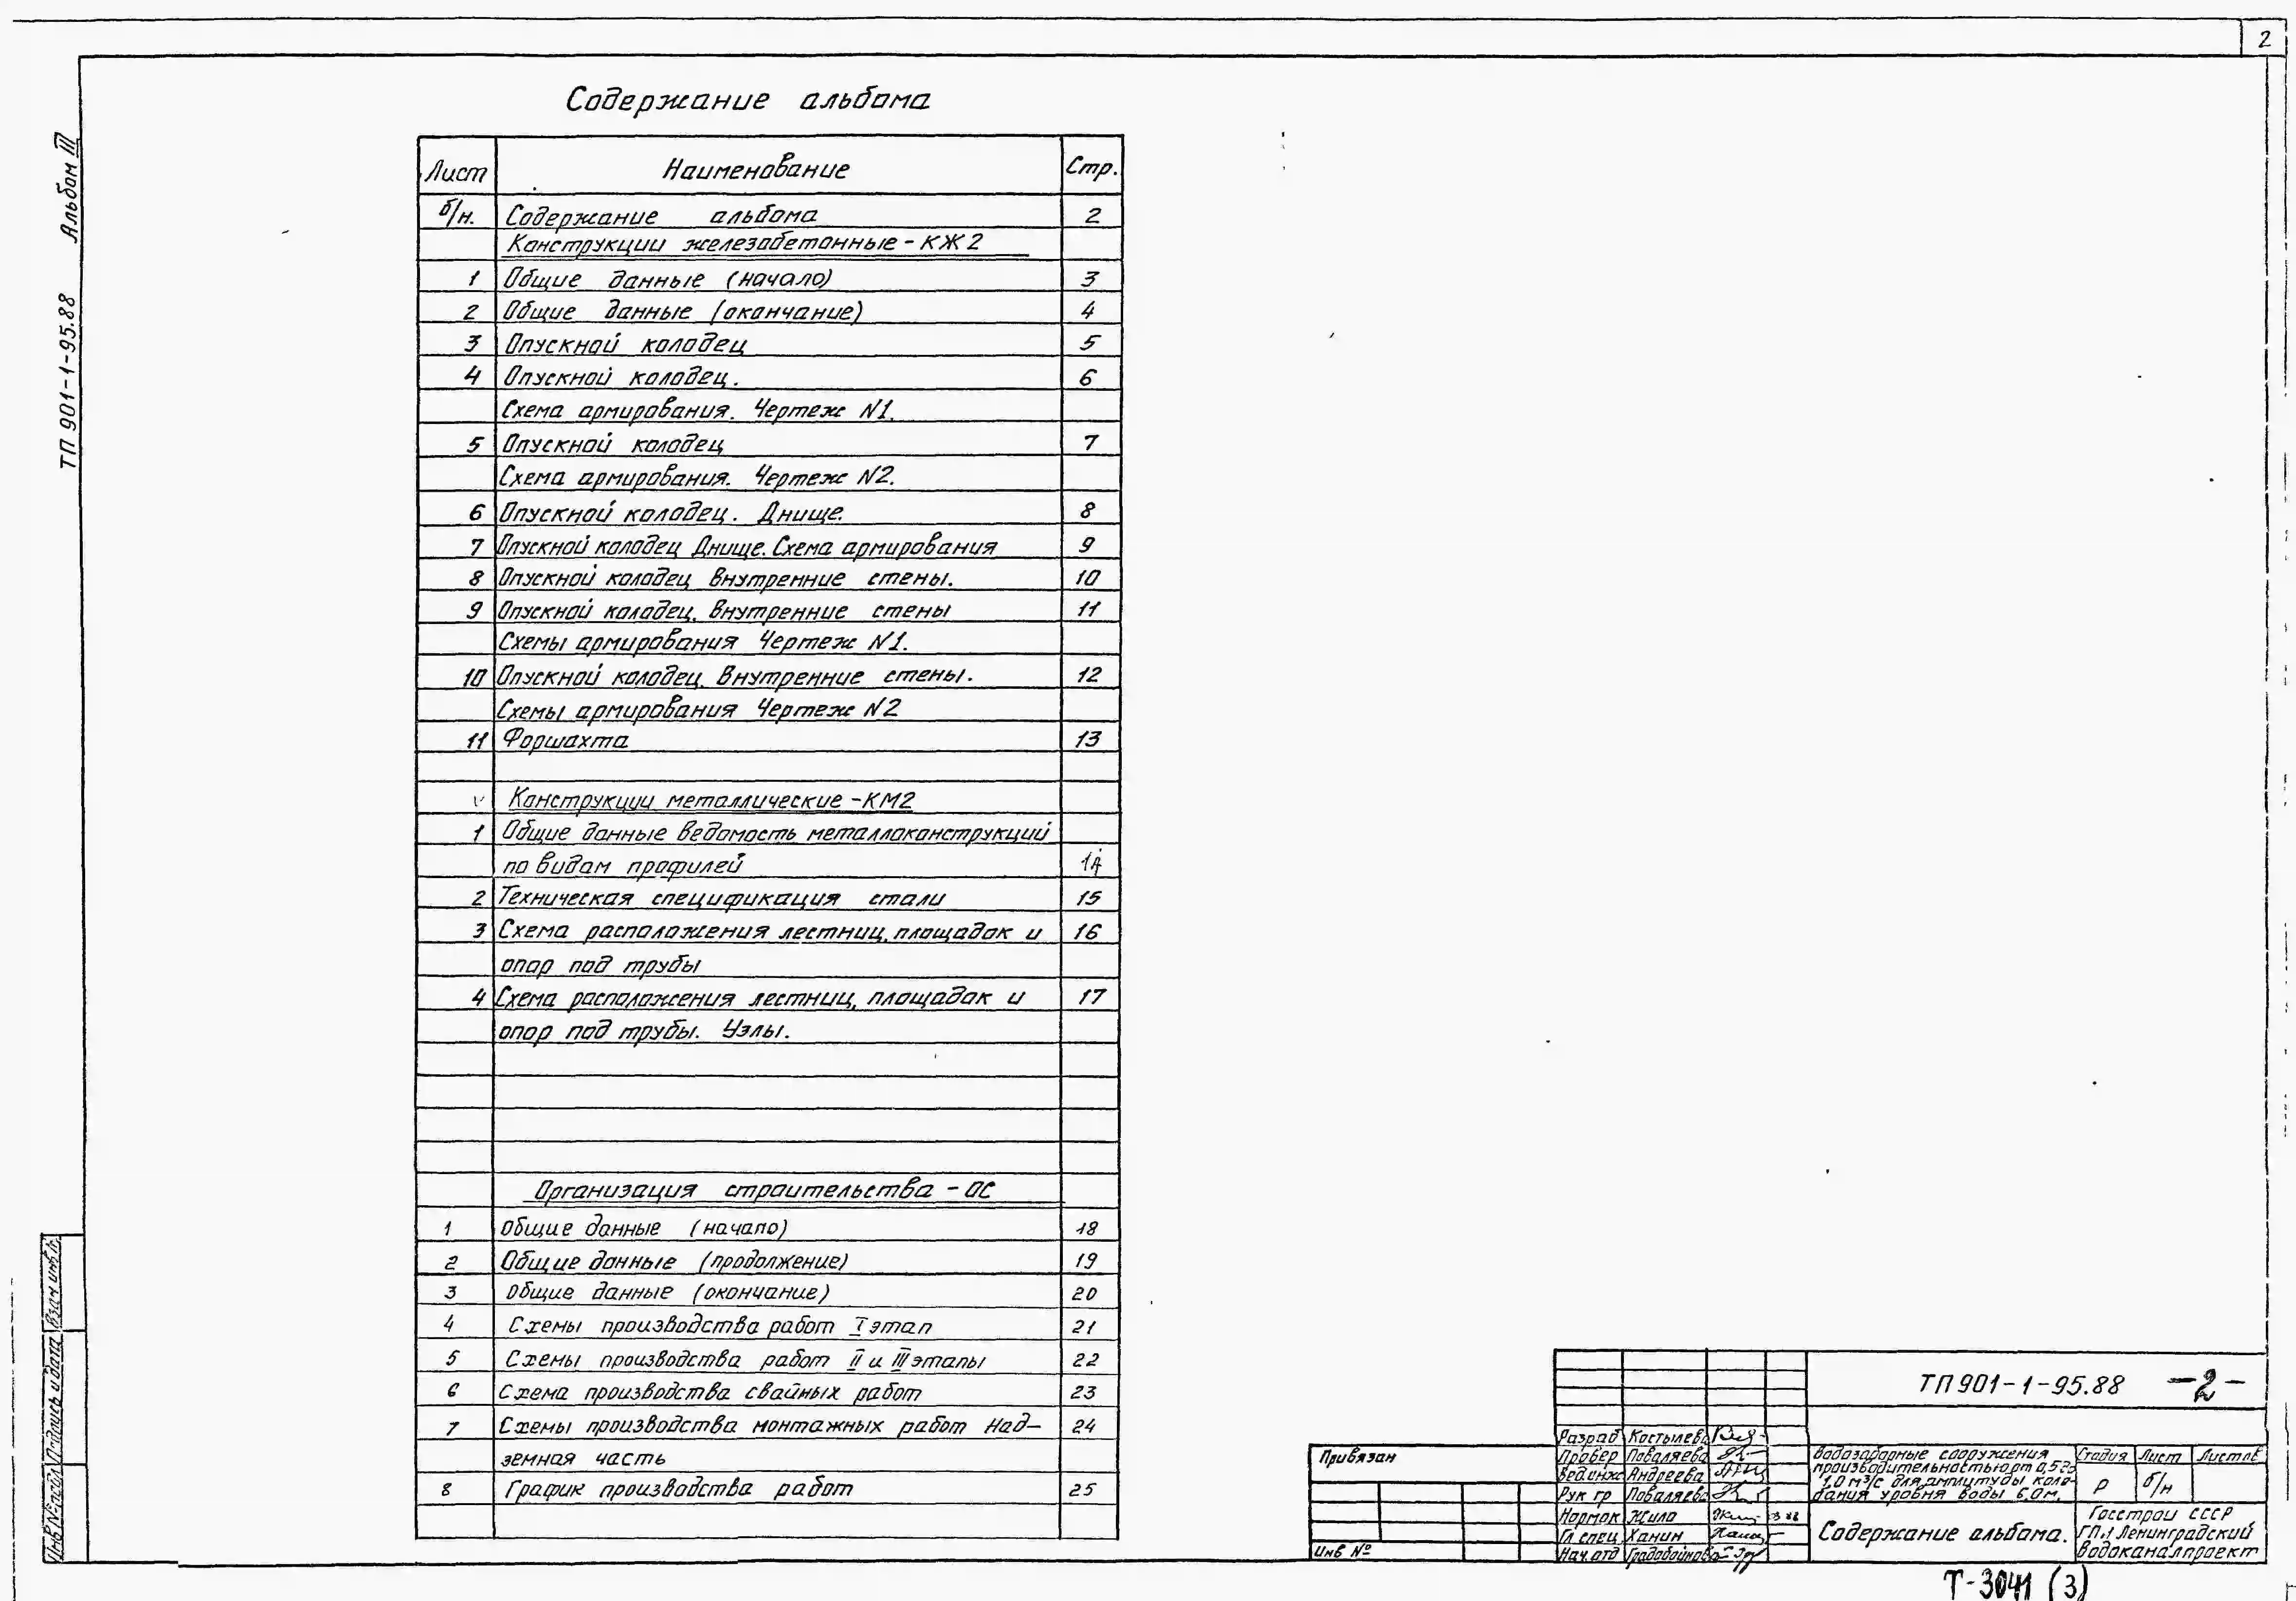 2
Альбом III
ТП 901-1-95.88
Содержание альбома
Лист Наименование Стр.
б/н. Содержание альбома 2
Конструкции железобетонные - КЖ2
1 Общие данные (начало) 3
2 Общие данные (окончание) 4
3 Опускной колодец 5
4 Опускной колодец. 6
Схема армирования. Чертеж N1.
5 Опускной колодец 7
Схема армирования. Чертеж N2.
6 Опускной колодец. Днище. 8
7 Опускной колодец Днище. Схема армирования 9
8 Опускной колодец Внутренние стены. 10
9 Опускной колодец. Внутренние стены 11
Схемы армирования Чертеж N1.
10 Опускной колодец. Внутренние стены. 12
Схемы армирования Чертеж N2
11 Форшахта 13
Конструкции металлические - КМ2
1 Общие данные Ведомость металлоконструкций
по видам профилей 14
2 Техническая спецификация стали 15
3 Схема расположения лестниц, площадок и 16
опор под трубы
4 Схема расположения лестниц, площадок и 17
опор под трубы. Узлы.
Организация строительства - ОС
1 Общие данные (начало) 18
2 Общие данные (продолжение) 19
3 Общие данные (окончание) 20
4 Схемы производства работ I этап 21
5 Схемы производства работ II и III этапы 22
6 Схема производства свайных работ 23
7 Схемы производства монтажных работ Над- 24
земная часть
8 График производства работ 25
Взам инв №
Подпись и дата
Инв № подл
Привязан
Инв №
ТП 901-1-95.88 -2-
Разраб Костылева
Провер Поваляева
Вед инж Андреева
Рук гр Поваляева
Нормок Жила
Гл спец Ханин
Нач. отд Градобойнова
Водозаборные сооружения
производительностью от 0,5 до
1,0 м3/с для амплитуды коле-
бания уровня воды 6,0м.
Стадия Лист Листов
Р б/н
Содержание альбома.
Госстрой СССР
ГПИ Ленинградский
Водоканалпроект
Т-3041 (3)